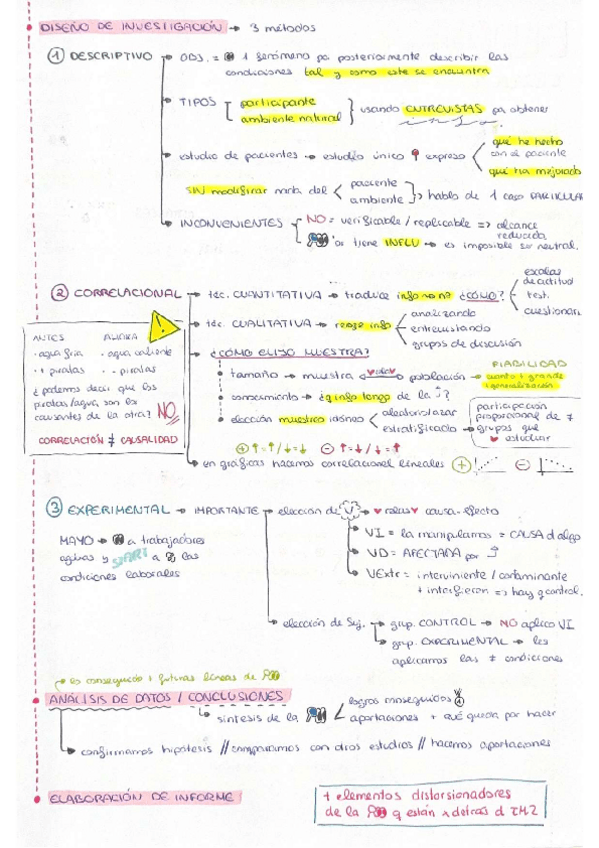 DISEÑO DE INVESTIGACIÓN → 3 métodos
① DESCRIPTIVO → OBJ. = 1 fenómeno pa posteriormente describir las
condiciones tal y como este se encuentra
→ TIPOS participante
ambiente natural
usando ENTREVISTAS pa obtener
info.
→ estudio de pacientes → estudio único ↑ expreso
qué he hecho
con el paciente
qué ha mejorado
SIN modificar nada del paciente
ambiente
⇒ hablo de 1 caso PARTICULAR
→ INCONVENIENTES NO = verificable / replicable => alcance
reducido
or tiene INFLU → es imposible ser neutral.
② CORRELACIONAL → téc. CUANTITATIVA → traduce info no nº ¿CÓMO?
escalas
de actitud
test.
cuestionari
→ téc. CUALITATIVA → recoge info
analizando
entrevistando
grupos de discusión
ANTES AHORA
· agua fría · agua caliente
· + piratas · - piratas
¿podemos decir que los
piratas/agua, son los
causantes de la otra? NO
CORRELACIÓN ≠ CAUSALIDAD
→ ¿CÓMO ELIJO MUESTRA?
tamaño → muestra población → cuanto + grande
+ generalización
FIABILIDAD
conocimiento → ¿q info tengo de la ?
elección muestreo idóneo
aleatorio/azar
estratificado →
participación
proporcional de ≠
grupos que
estudiar
⊕ ↑ = ↑ / ↓ = ↓ ⊖ ↑ = ↓ / ↓ = ↑
→ en gráficas hacemos correlacional lineales ⊕ ⊖
③ EXPERIMENTAL → IMPORTANTE → elección de V → relac causa-efecto
→ VI = la manipulamos = CAUSA d algo
→ VD = AFECTADA por
→ VExtr = interviniente / contaminante
+ interfieren => hay q control.
MAYO → a trabajadores
agrias y START a las
condiciones laborales
→ elección de Suj. → grup. CONTROL → NO aplico VI
→ grup. EXPERIMENTAL → les
aplicamos las ≠ condiciones
→ lo conseguido + futuras líneas de
ANÁLISIS DE DATOS / CONCLUSIONES
→ síntesis de la
logros conseguidos
aportaciones + qué queda por hacer
→ confirmamos hipótesis // comparamos con otros estudios // hacemos aportaciones
ELABORACIÓN DE INFORME
+ elementos distorsionadores
de la q están x detrás d TMZ